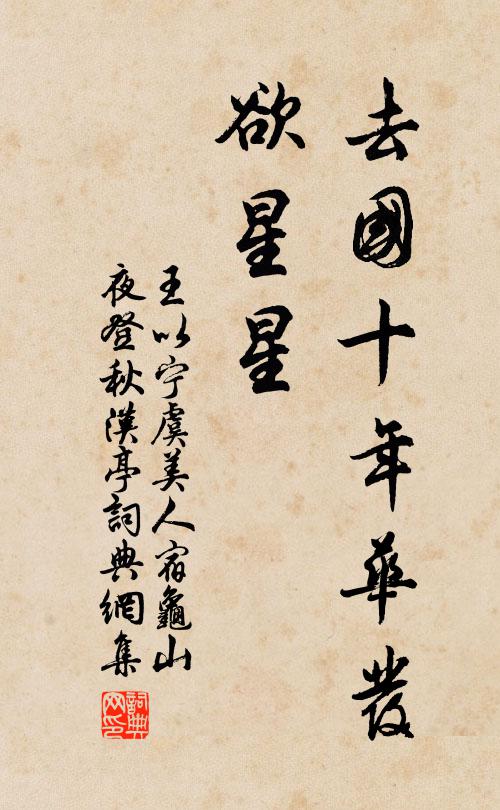 去國十年華發
欲星星
王以宁虞美人宿龜山
夜登秋漢亭詞典網集
詞典网印